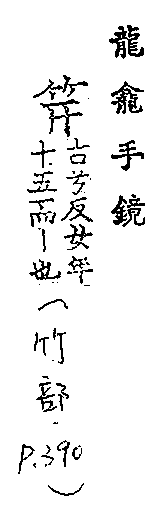 龍龕手鏡
笄古兮反女年
十五而丨也(竹部.
P.390)